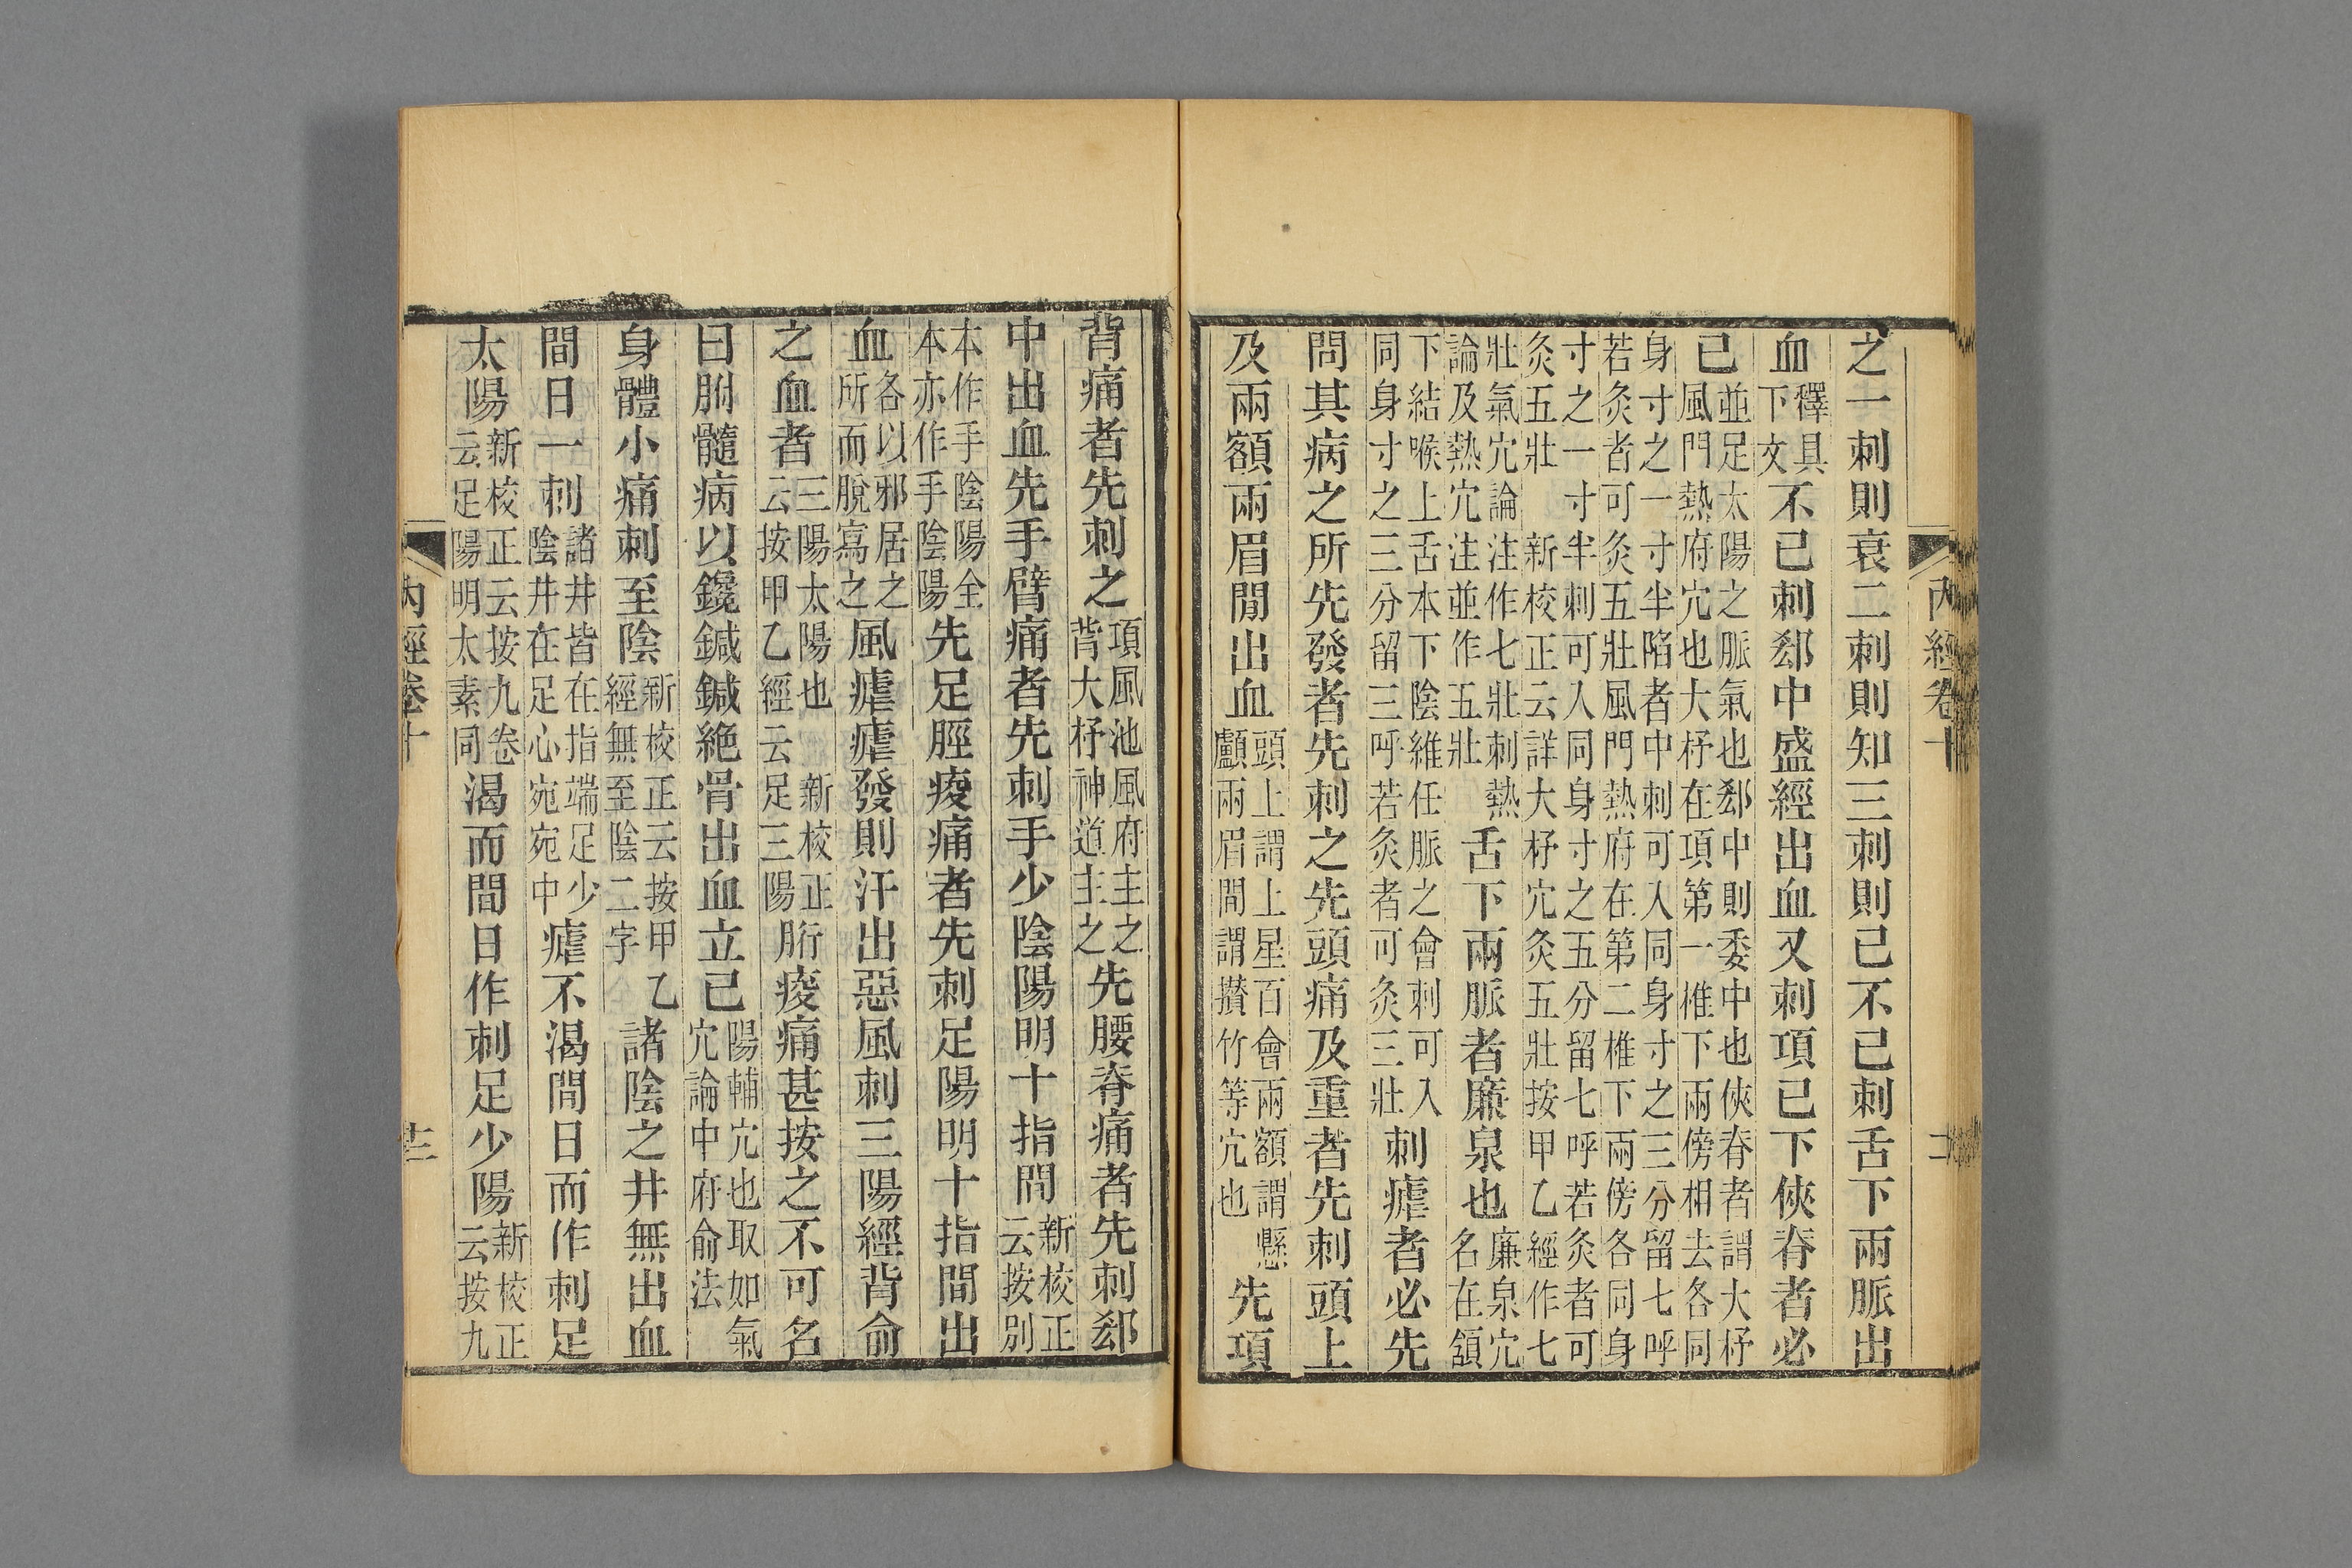 內經卷十
之一刺則衰二刺則知三刺則已不已刺舌下兩脈出
血釋具下文不已刺郄中盛經出血又刺項已下俠脊者必
已並足太陽之脈氣也郄中則委中也俠脊者謂大杼風門熱府穴也大杼在項第一椎下兩傍相去各同
身寸之一寸半陷者中刺可入同身寸之三分留七呼若灸者可灸五壯風門熱府在第二椎下兩傍各同身
寸之一寸半刺可入同身寸之五分留七呼若灸者可灸五壯 新校正云詳大杼穴灸五壯按甲乙經作七
壯氣穴論注作七壯刺熱論及熱穴注並作五壯舌下兩脈者廉泉也廉泉穴名在頷
下結喉上舌本下陰維任脈之會刺可入同身寸之三分留三呼若灸者可灸三壯刺瘧者必先
問其病之所先發者先刺之先頭痛及重者先刺頭上
及兩額兩眉間出血頭上謂上星百會兩額謂懸顱兩眉間謂攅竹等穴也先項
背痛者先刺之項風池風府主之背大杼神道主之先腰脊痛者先刺郄
中出血先手臂痛者先刺手少陰陽明十指間新校正云按別
本作手陰陽全本亦作手陰陽先足脛痠痛者先刺足陽明十指間出
血各以邪居之所而脫寫之風瘧瘧發則汗出惡風刺三陽經背俞
之血者三陽太陽也 新校正云按甲乙經云足三陽䯒痠痛甚按之不可名
曰胕髓病以鑱鍼鍼絕骨出血立已陽輔穴也取如氣穴論中府俞法
身體小痛刺至陰新校正云按甲乙經無至陰二字諸陰之井無出血
間日一刺諸井皆在指端足少陰井在足心宛宛中瘧不渴間日而作刺足
太陽新校正云按九卷云足陽明太素同渴而間日作刺足少陽新校正云按九
內經卷十